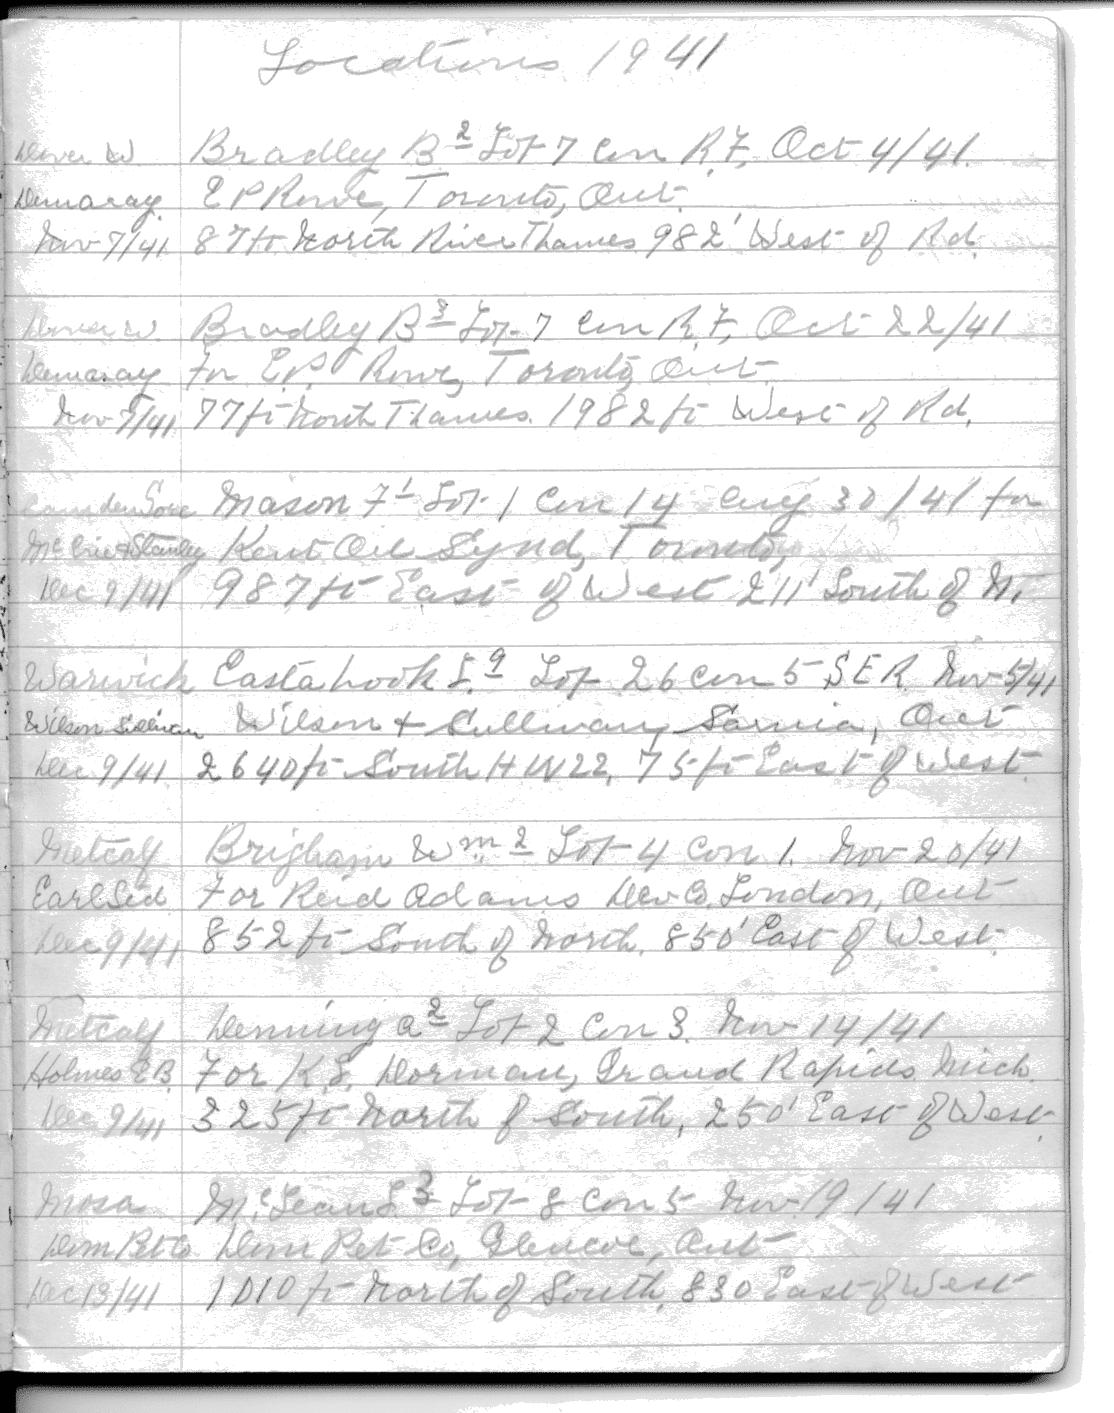 Locations 1941
Dover W Bradley B 2 Lot 7 Con R.F, Oct 4/41.
Demaray E P Rowe, Toronto, Ont.
Nov 7/41 87ft North River Thames 982' West of Rd.
Dover W. Bradley B 3 Lot 7 Con R.F, Oct 22/41
Demaray For E.P. Rowe, Toronto, Ont.
Nov 7/41 77ft North Thames. 1982 ft West of Rd.
Camden Gore Mason F 1 Lot 1 Con 14 Aug 30/41 for
Stanley Kent Oil Synd, Toronto,
Dec 9/41 987ft East of West 211' South of N.
Warwick Eastabrook 9 Lot 26 Con 5 S E R. Nov 5/41
Wilson Sullivan Wilson + Sullivan, Sarnia, Ont
Dec 9/41 2640ft South HW 22, 75ft East of West.
Metcalf Brigham Wm 2 Lot 4 Con 1. Nov 20/41
Earl Sid For Reid Adams Dev Co, London, Ont
Dec 9/41 852 ft South of North, 850' East of West.
Metcalf Denning A 2 Lot 2 Con 3. Nov 14/41
Holmes E B. For K.S. Dorman, Grand Rapids Mich.
Dec 9/41 325ft North of South, 250' East of West.
Mosa McLean S. 3 Lot 8 Con 5 Nov. 19/41
Dom Pet Co Dom Pet Co, Glencoe, Ont
Dec 13/41 1010 ft North of South, 830 East of West